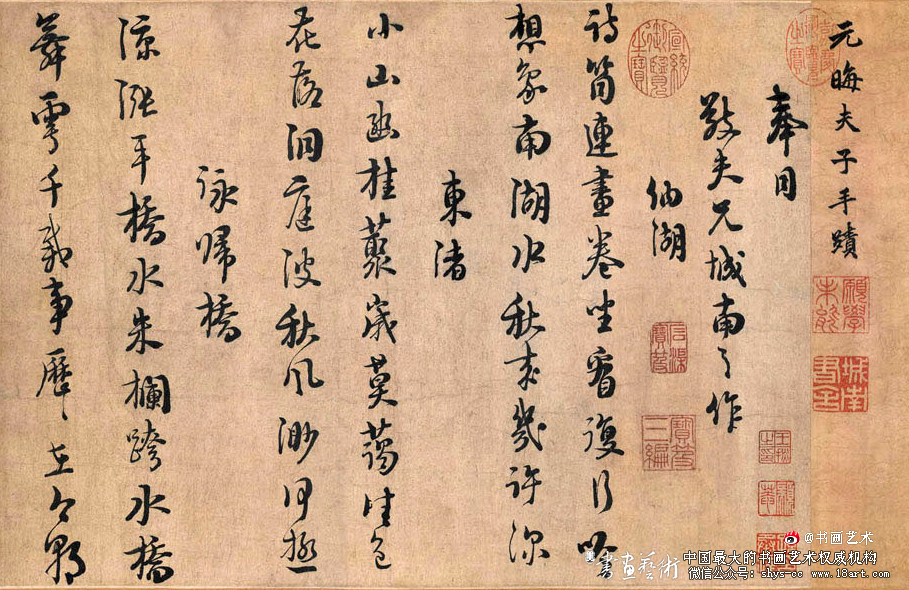 元晦夫子手蹟
奉同
敬夫兄城南之作
納湖
詩筒連畫卷坐看復行吟
想象南湖水秋來幾許深
東渚
小山幽桂叢歲莫藹佳色
花落洞庭波秋風渺何極
詠歸橋
綠漲平橋水朱欄跨水橋
舞雩千載事歷歷在今朝
宣統御覽之寶
寶笈三編
願學未能
城南書屋
@书画艺术
書畫藝術
中国最大的书画艺术权威机构
微信公众号：shys-cc www.18art.com